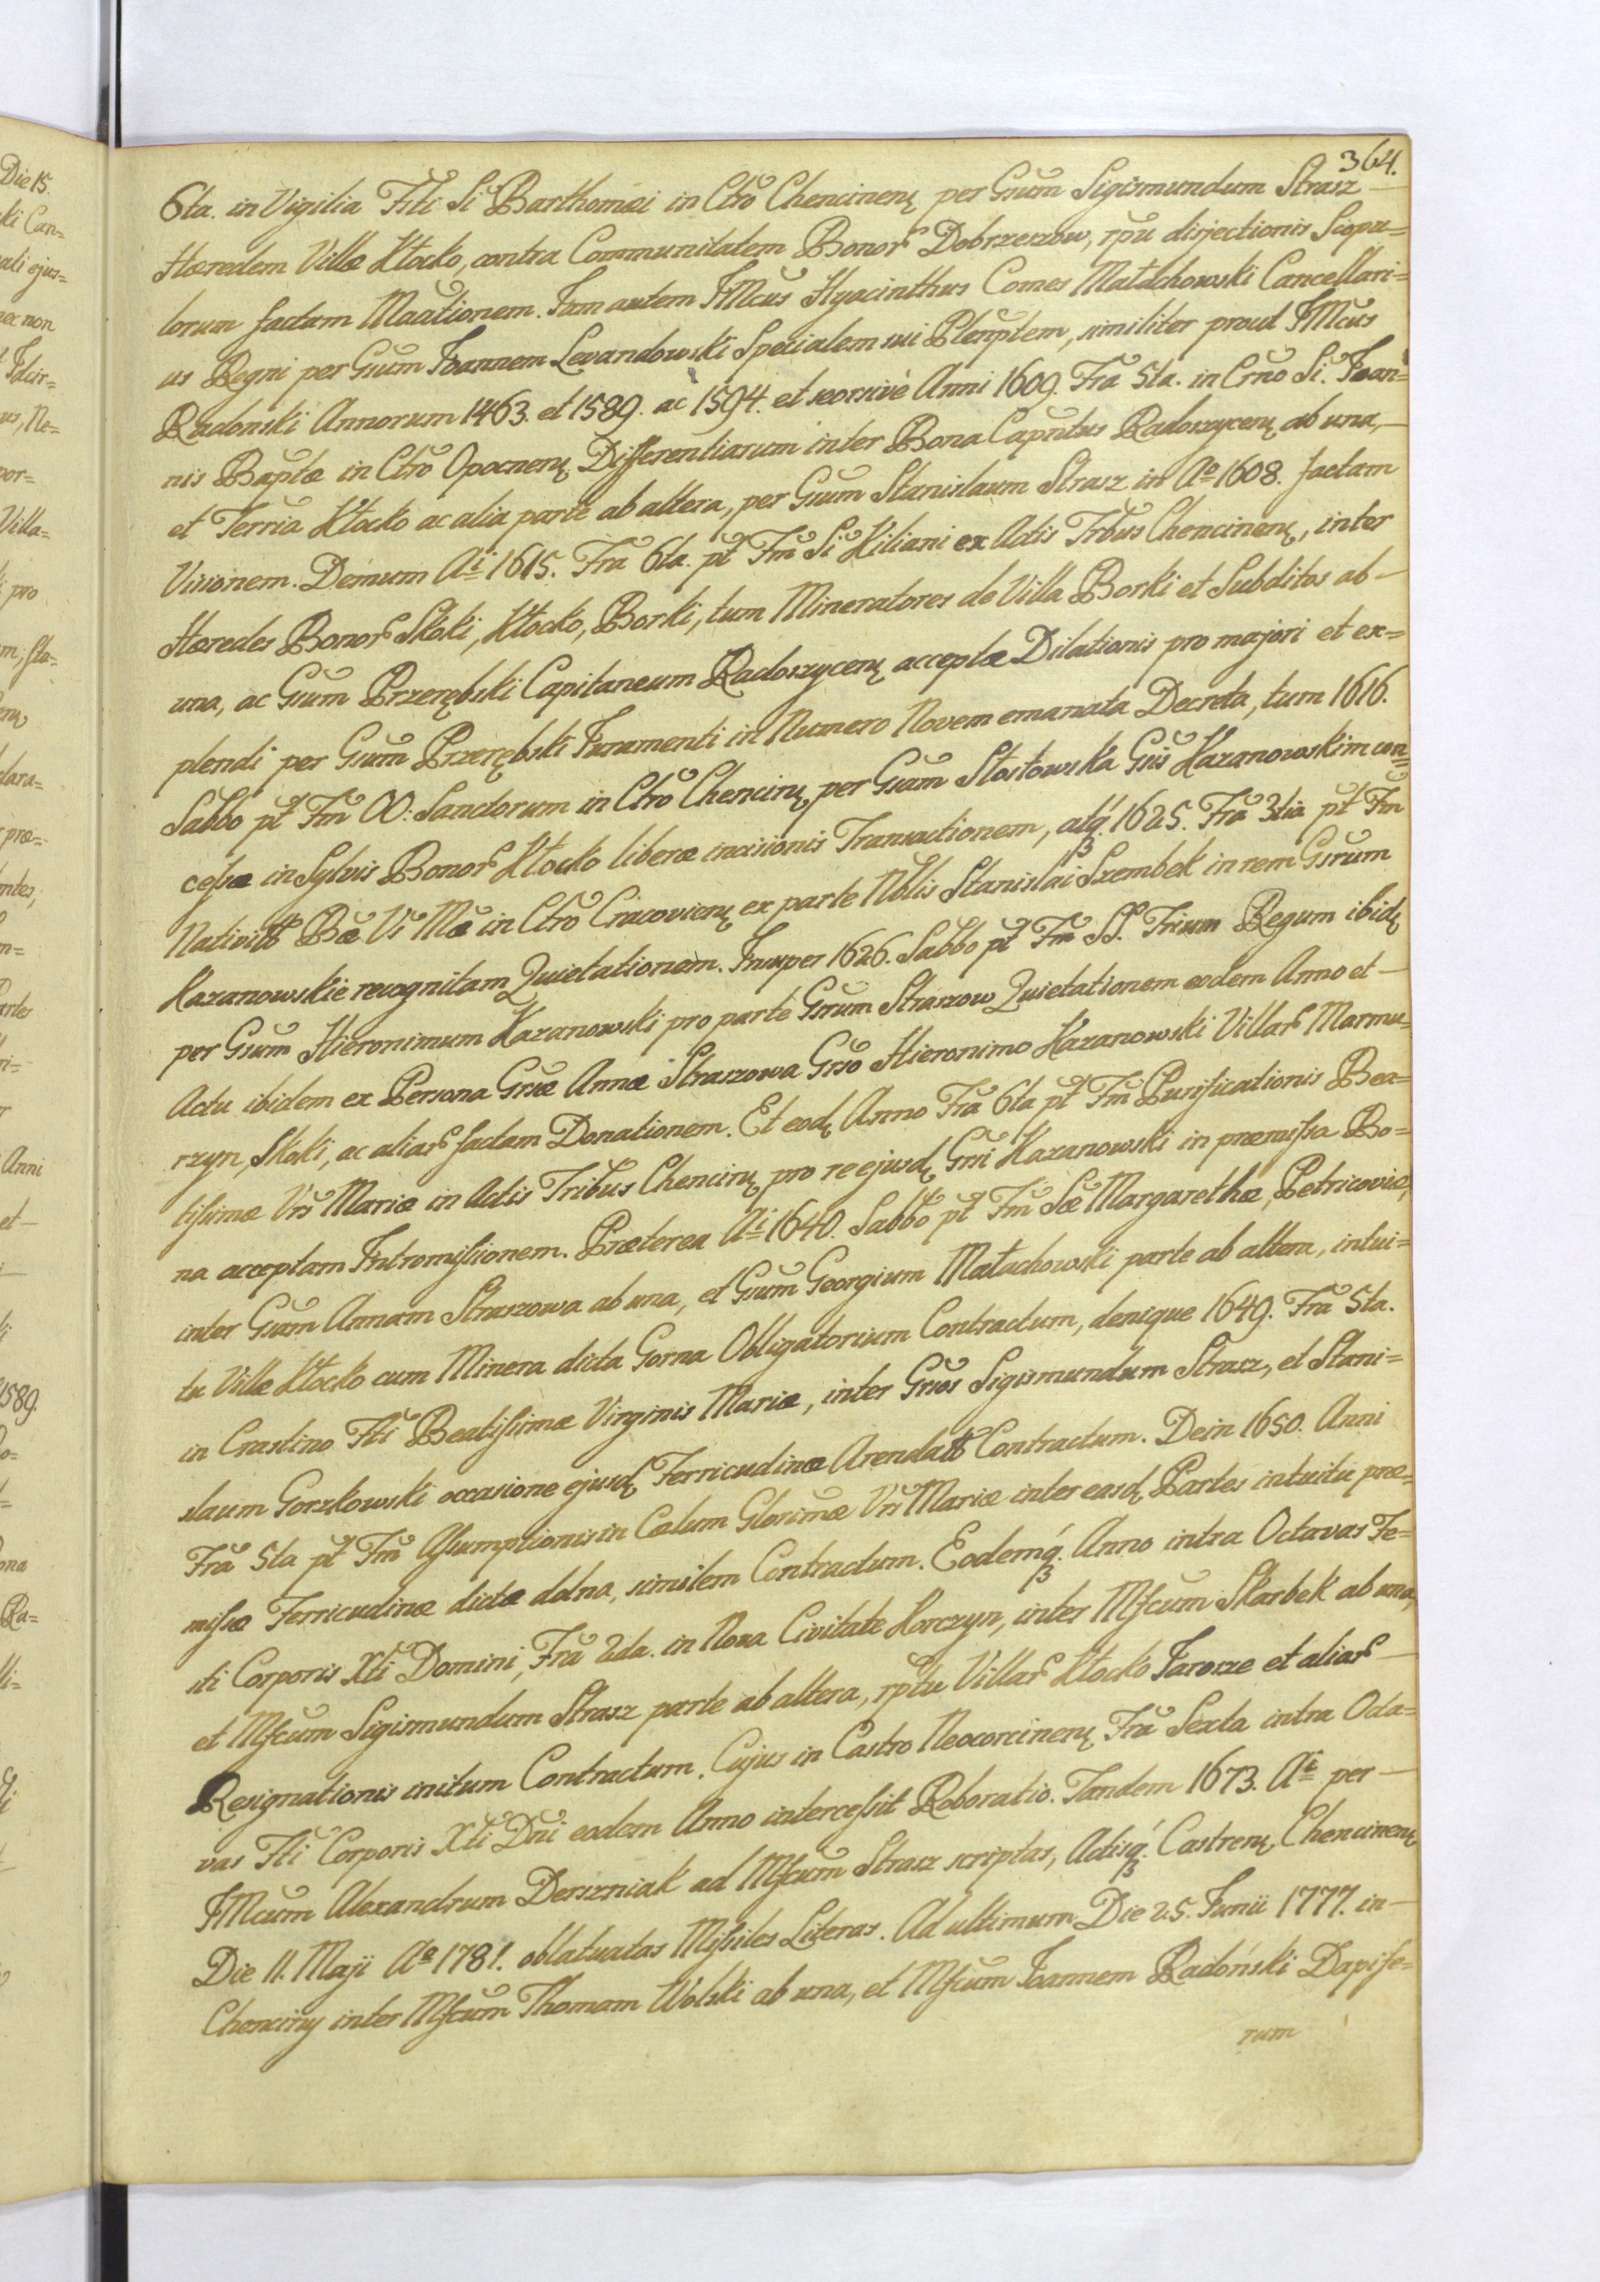 364.
6ta. in Vigilia Fti Si Barthomæi in Ctro Chencinenŭ per Gsum Sigismundum Strasz
Hæredem Villæ Kłocko, contra Communitatem Bonor Dobrzeszow, rpu disjectionis Scopu=
lorum factam Maationem. Jam autem JMcus Hyacinthus Comes Małachowski Cancellari=
us Regni per Gsum Joannem Levandowski Specialem sui Plenptem, similiter proud JMcus
Radonski Annorum 1463. et 1589. ac 1594. et seorsivè Anni 1609. Fra 5ta. in Crno Si. Joan=
nis Baptæ in Ctro Opocnenŭ Differentiarum inter Bona Capntus Radoszycenŭ ab una,
et Terria Kłocko ac alia parte ab altera, per Gsum Stanislaum Strasz in Aº 1608. factam
Visionem. Demum Ai 1615. Fra 6ta. pt Fm Si Kiliani ex Actis Trbus Chencinenŭ, inter
Hæredes Bonor Skoki, Kłocko, Borki, tum Mineratores de Villa Borki et Subditos ab
una, ac Gsum Przerębski Capitaneum Radoszycenŭ acceptæ Dilationis pro majori et ex=
plendi per Gsum Przerębski Juramenti in Numero Novem emanata Decreta, tum 1616.
Sabbo pt Fm OO: Sanctorum in Ctro Chencinŭ per Gsam Stostowska Gsis Kazanowskim con=
cessæ in Sylvis Bonor Kłocko liberæ incisionis Transactionem, atq. 1625. Fra 3tia pt Fm
Nativitt Bæ Vi Mæ in Ctro Cracovienŭ ex parte Nblis Stanislai Szembek in rem Gsrum
Kazanowskie recognitam Quietationem. Insuper 1626. Sabbo pt Fm SS. Trium Regum ibidŭ
per Gsum Hieronimum Kazanowski pro parte Gsrum Straszow Quietationem eodem Anno et
Actu ibidem ex Persona Gsæ Annæ Straszowa Gso Hieronimo Kazanowski Villar Marmu=
rzyn, Skoki, ac aliar factam Donationem. Et eodŭ Anno Fra 6ta pt Fm Purificationis Bea=
tissimæ Vrs Mariæ in Actis Tribus Chencinŭ pro re ejusdŭ Gsi Kazanowski in præmissa Bo=
na acceptam Intromissionem. Præterea Ai 1640. Sabbo pt Fm Sæ Margarethæ, Petricoviæ,
inter Gsam Annam Straszowa ab una, et Gsum Georgium Małachowski parte ab altera, intui=
tu Villæ Kłocko cum Minera dicta Gorna Obligatorium Contractum, denique 1649. Fra 5ta.
in Crastino Fti Beatissimæ Virginis Mariæ, inter Gsos Sigismundum Strasz, et Stani=
slaum Gorzkowski occasione ejusdŭ Ferricudinæ Arendatt Contractum. Dein 1650. Anni
Fra 5ta pt Fm Assumptionis in Cœlum Glorimæ Vrs Mariæ inter easdŭ Partes intuitu præ=
missæ Ferricudinæ dictæ dolna, similem Contractum. Eodemq. Anno intra Octavas Fe=
sti Corporis Xti Domini, Fra 2da. in Nova Civitate Korczyn, inter Mfcum Skarbek ab una,
et Mfcum Sigismundum Strasz parte ab altera, rptu Villar Kłocko Jarosze et aliar
Resignationis initum Contractum. Cujus in Castro Neocorcinenŭ Fra Sexta intra Octa=
vas Fti Corporis Xti Dni eodem Anno intercessit Roboratio. Tandem 1673. Aº per
JMcum Alexandrum Derszniak ad Mfcum Strasz scriptas, Actisq. Castrenŭ Chencinenŭ
Die 11. Maji Aº 1781. oblatuatas Missiles Literas. Ad ultimum Die 25. Junii 1777. in
Chenciny inter Mfcum Thomam Wolski ab una, et Mfcum Joannem Radoński Dapife=
rum